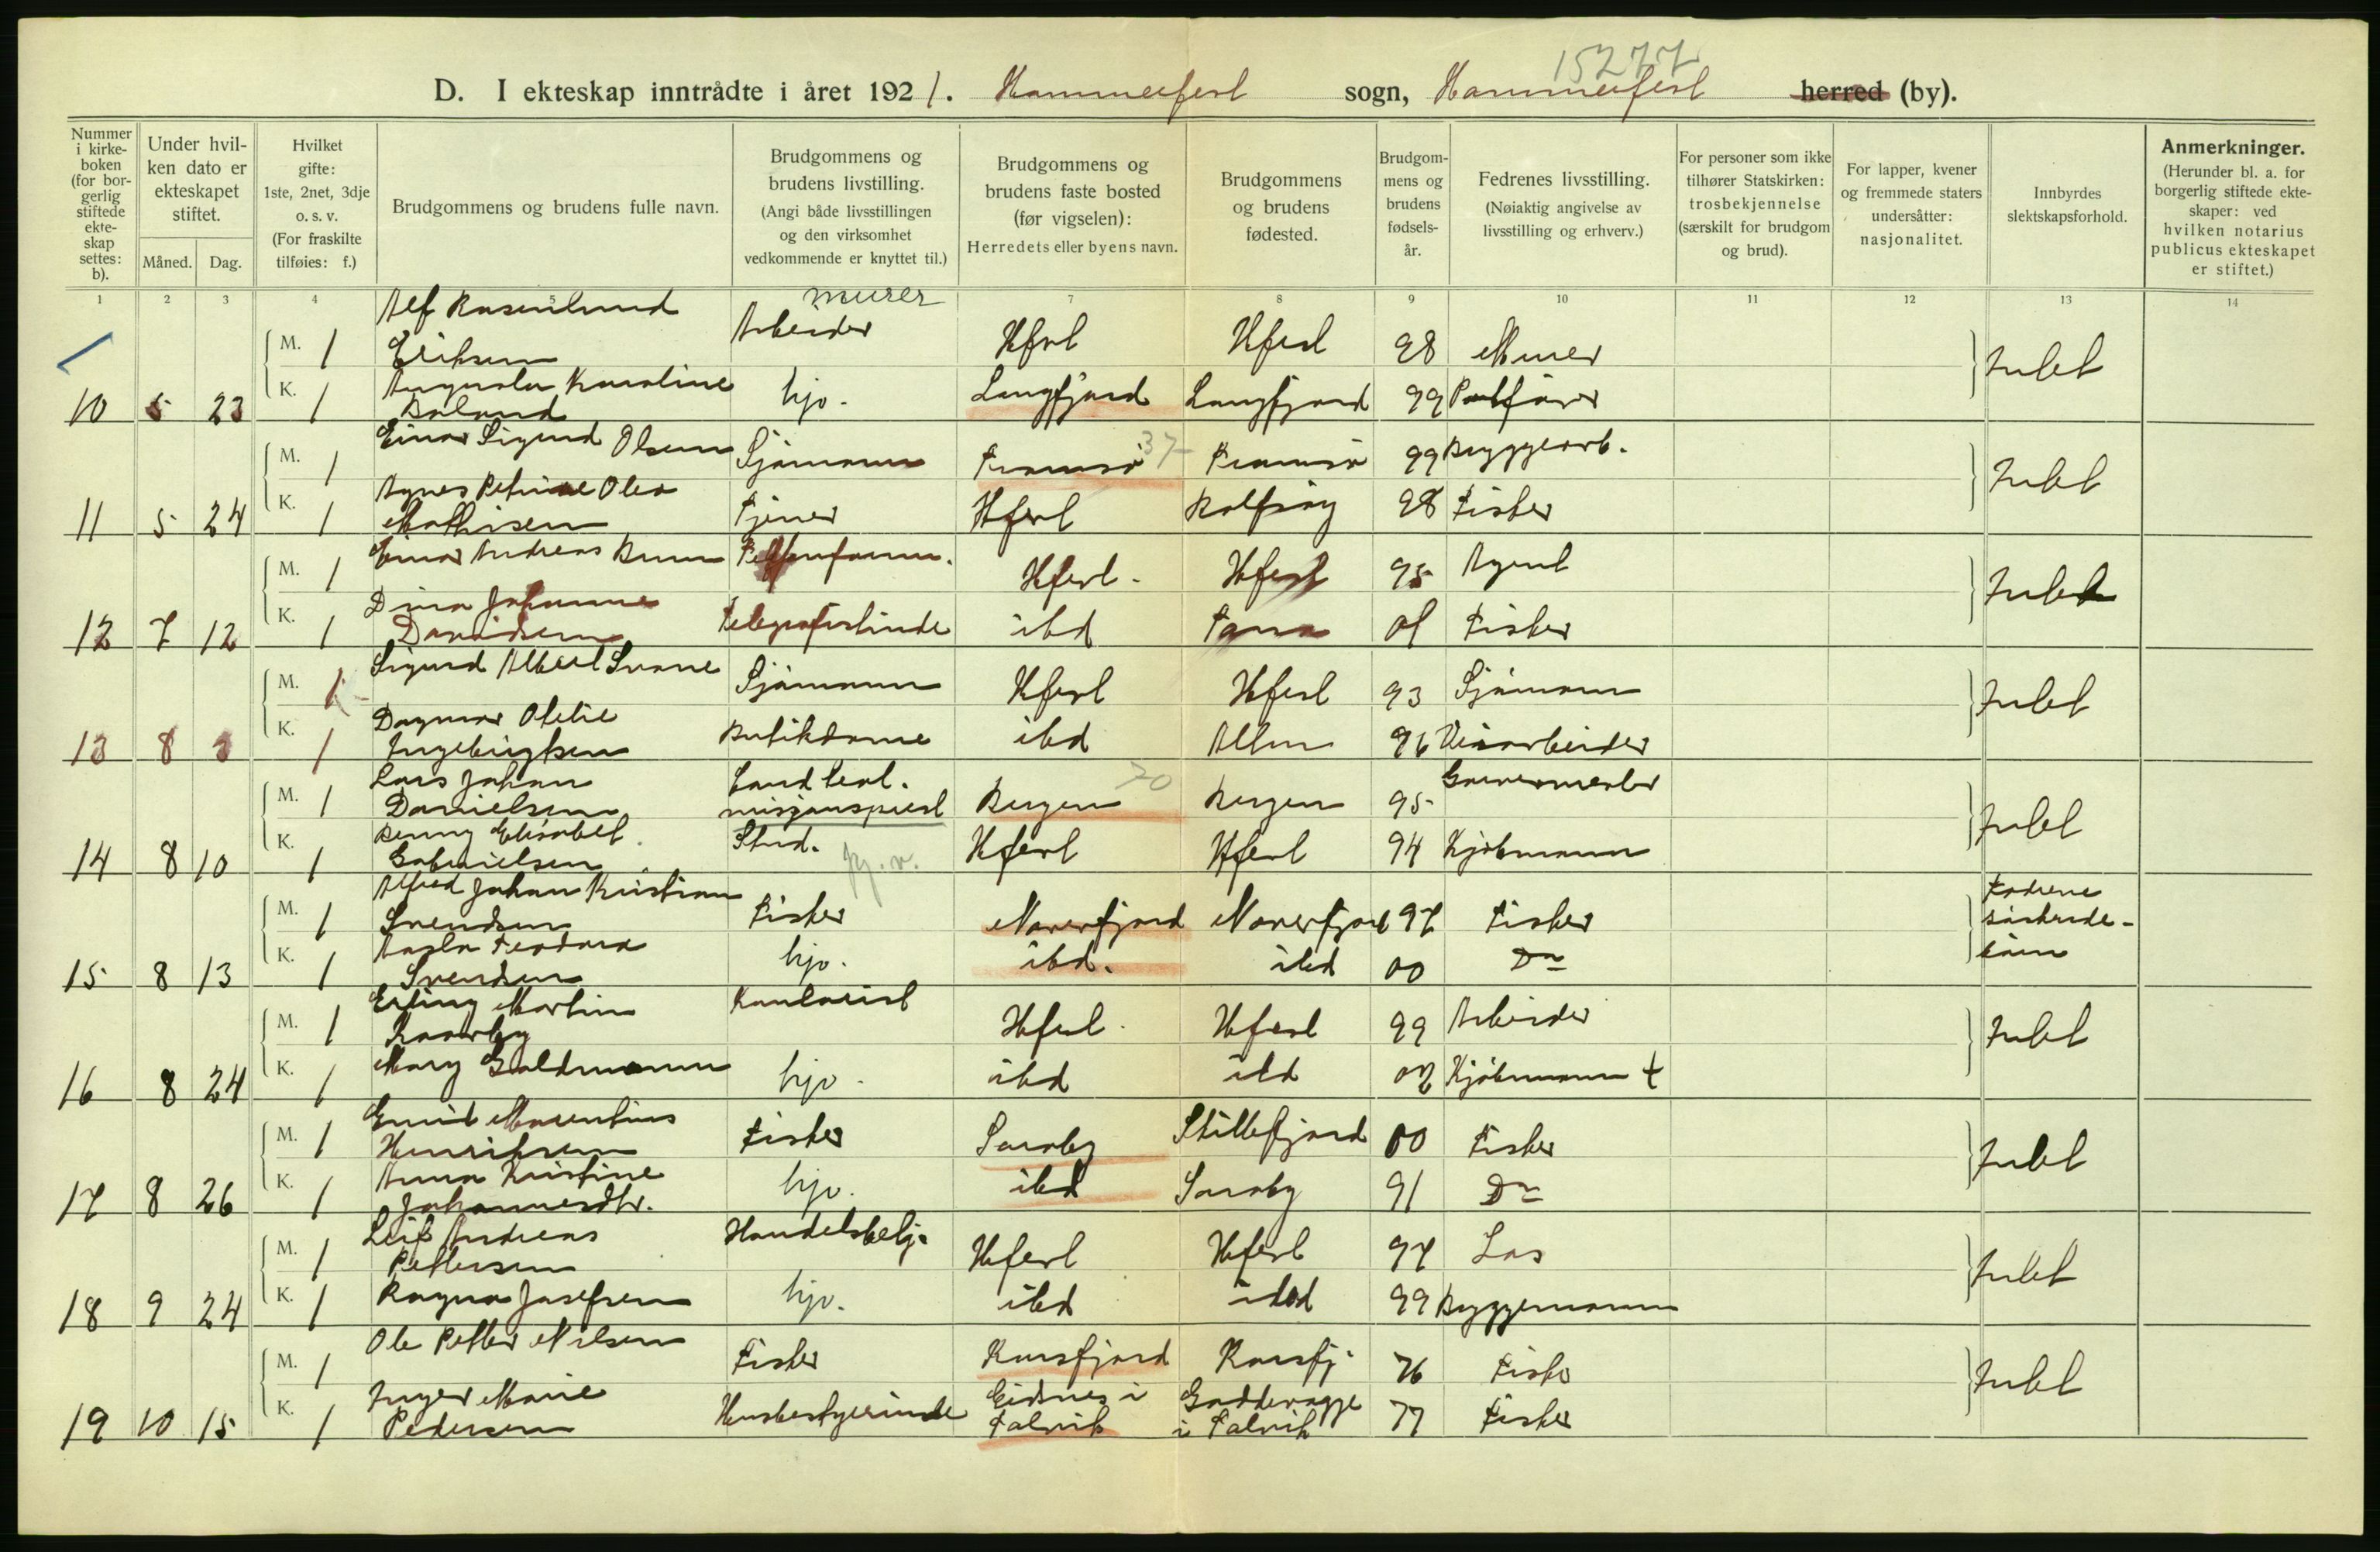 15277
D. I ekteskap inntrådte i året 1921. Hammerfest sogn, Hammerfest herred (by).
Nummer i kirkeboken (for borgerlig stiftede ekteskap settes: b).
Under hvilken dato er ekteskapet stiftet.
Måned. Dag.
Hvilket gifte: 1ste, 2net, 3dje o. s. v. (For fraskilte tilføies: f.)
Brudgommens og brudens fulle navn.
Brudgommens og brudens livstilling. (Angi både livsstillingen og den virksomhet vedkommende er knyttet til.)
Brudgommens og brudens faste bosted (før vigselen): Herredets eller byens navn.
Brudgommens og brudens fødested.
Brudgommens og brudens fødselsår.
Fedrenes livsstilling. (Nøiaktig angivelse av livsstilling og erhverv.)
For personer som ikke tilhører Statskirken: trosbekjennelse (særskilt for brudgom og brud).
For lapper, kvener og fremmede staters undersåtter: nasjonalitet.
Innbyrdes slektskapsforhold.
Anmerkninger. (Herunder bl. a. for borgerlig stiftede ekteskaper: ved hvilken notarius publicus ekteskapet er stiftet.)
1 2 3 4 5 7 8 9 10 11 12 13 14
M. 1 Alf Rosenlund Eriksen murer Arbeider Hfest Hfest 98 Murer Intet
10 5 23 K. 1 Augusta Karoline Boland hjv. Langfjord Langfjord 99 Postfører
M. 1 Einar Sigurd Olsen Sjömann Tromsö 37- Tromsö 99 Bryggearb. Intet
11 5 24 K. 1 Agnes Petrine Olea Mathisen Tjener Hfest Rolfsöy 98 Fisker
M. 1 Einar Andreas Bruun Hfest. Hfest 95 Agent Intet
12 7 12 K. 1 Dina Johanne Davidsen Telegrafistinde ibd Tana 01 Fisker
M. 1 Sigurd Albert Svane Sjömann Hfest Hfest 93 Sjömann Intet
13 8 3 K. 1 Dagmar Otelie Ingebrigtsen Butikdame ibd Alten 96 Veiarbeider
M. 1 Lars Johan Danielsen Cand teol. misjonsprest Bergen 70 Bergen 95 Garvermester Intet
14 8 10 K. 1 Benny Elisabet Gabrielsen Stud. Hfest Hfest 94 Kjöbmann
M. 1 Alfred Johan Kristian Svendsen Fisker Naverfjord Naverfjord 97 Fisker Fædrene söskende-
15 8 13 K. 1 Aasla Feodora Svendsen hjv. ibd. ibd 00 Do
M. 1 Erling Martin Kaarby Kontorist Hfest. Hfest 99 Arbeider Intet
16 8 24 K. 1 Mary Goldmann hjv. ibd ibd 02 Kjöbmann †
M. 1 Emil Marentius Henriksen Fisker Saraby Skillefjord 00 Fisker Intet
17 8 26 K. 1 Anna Kristine Johannesdtr. hjv. ibd Saraby 91 Do
M. 1 Leif Andreas Pettersen Handelsbetj. Hfest Hfest 97 Los Intet
18 9 24 K. 1 Ragna Josefsen hjv. ibd ibd 99 Bryggemann
M. 1 Ole Petter Nilsen Fisker Korsfjord Korsfj. 76 Fisker Intet
19 10 15 K. 1 Inger Marie Pedersen Husbestyerinde Eidsnes i Talvik Goddevagge i Talvik 77 Fisker